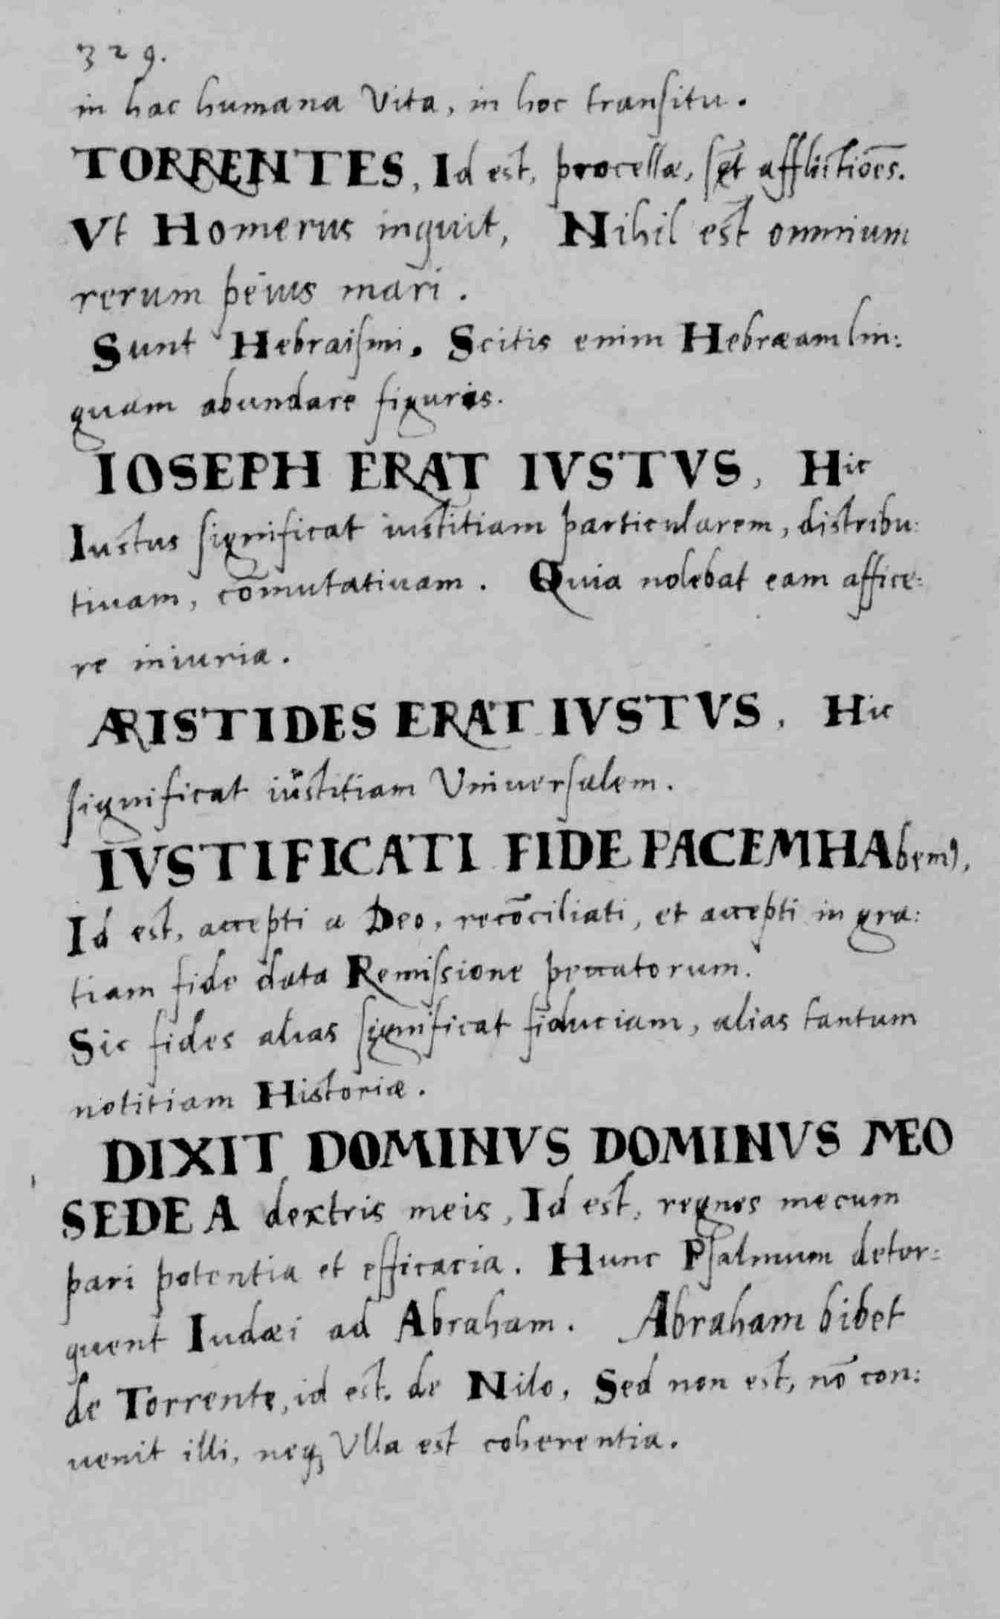 329.
in hac humana Vita, in hoc transitu.
TORRENTES, Id est, procellæ, sūt afflictiōes.
Vt Homerus inquit, Nihil est omnium
rerum peius mari.
Sunt Hebraismi. Scitis enim Hebræam lin:
guam abundare figuris.
IOSEPH ERAT IVSTVS, Hic
Iustus significat iustitiam particularem, distribu:
tiuam, cōmutatiuam. Quia nolebat eam affice:
re iniuria.
ARISTIDES ERAT IVSTVS, Hic
significat iustitiam Vniuersalem.
IVSTIFICATI FIDE PACEM HAbemꝰ,
Id est, accepti a Deo, recōciliati, et accepti in gra:
tiam fide data Remissione peccatorum.
Sic fides alias significat fiduciam, alias tantum
notitiam Historiæ.
DIXIT DOMINVS DOMINVS MEO
SEDE A dextris meis, Id est, regnes mecum
pari potentia et efficacia. Hunc Psalmum detor:
quent Iudæi ad Abraham. Abraham bibet
de Torrente, id est. de Nilo, Sed non est, nō con:
uenit illi, neqꝫ Vlla est coherentia.